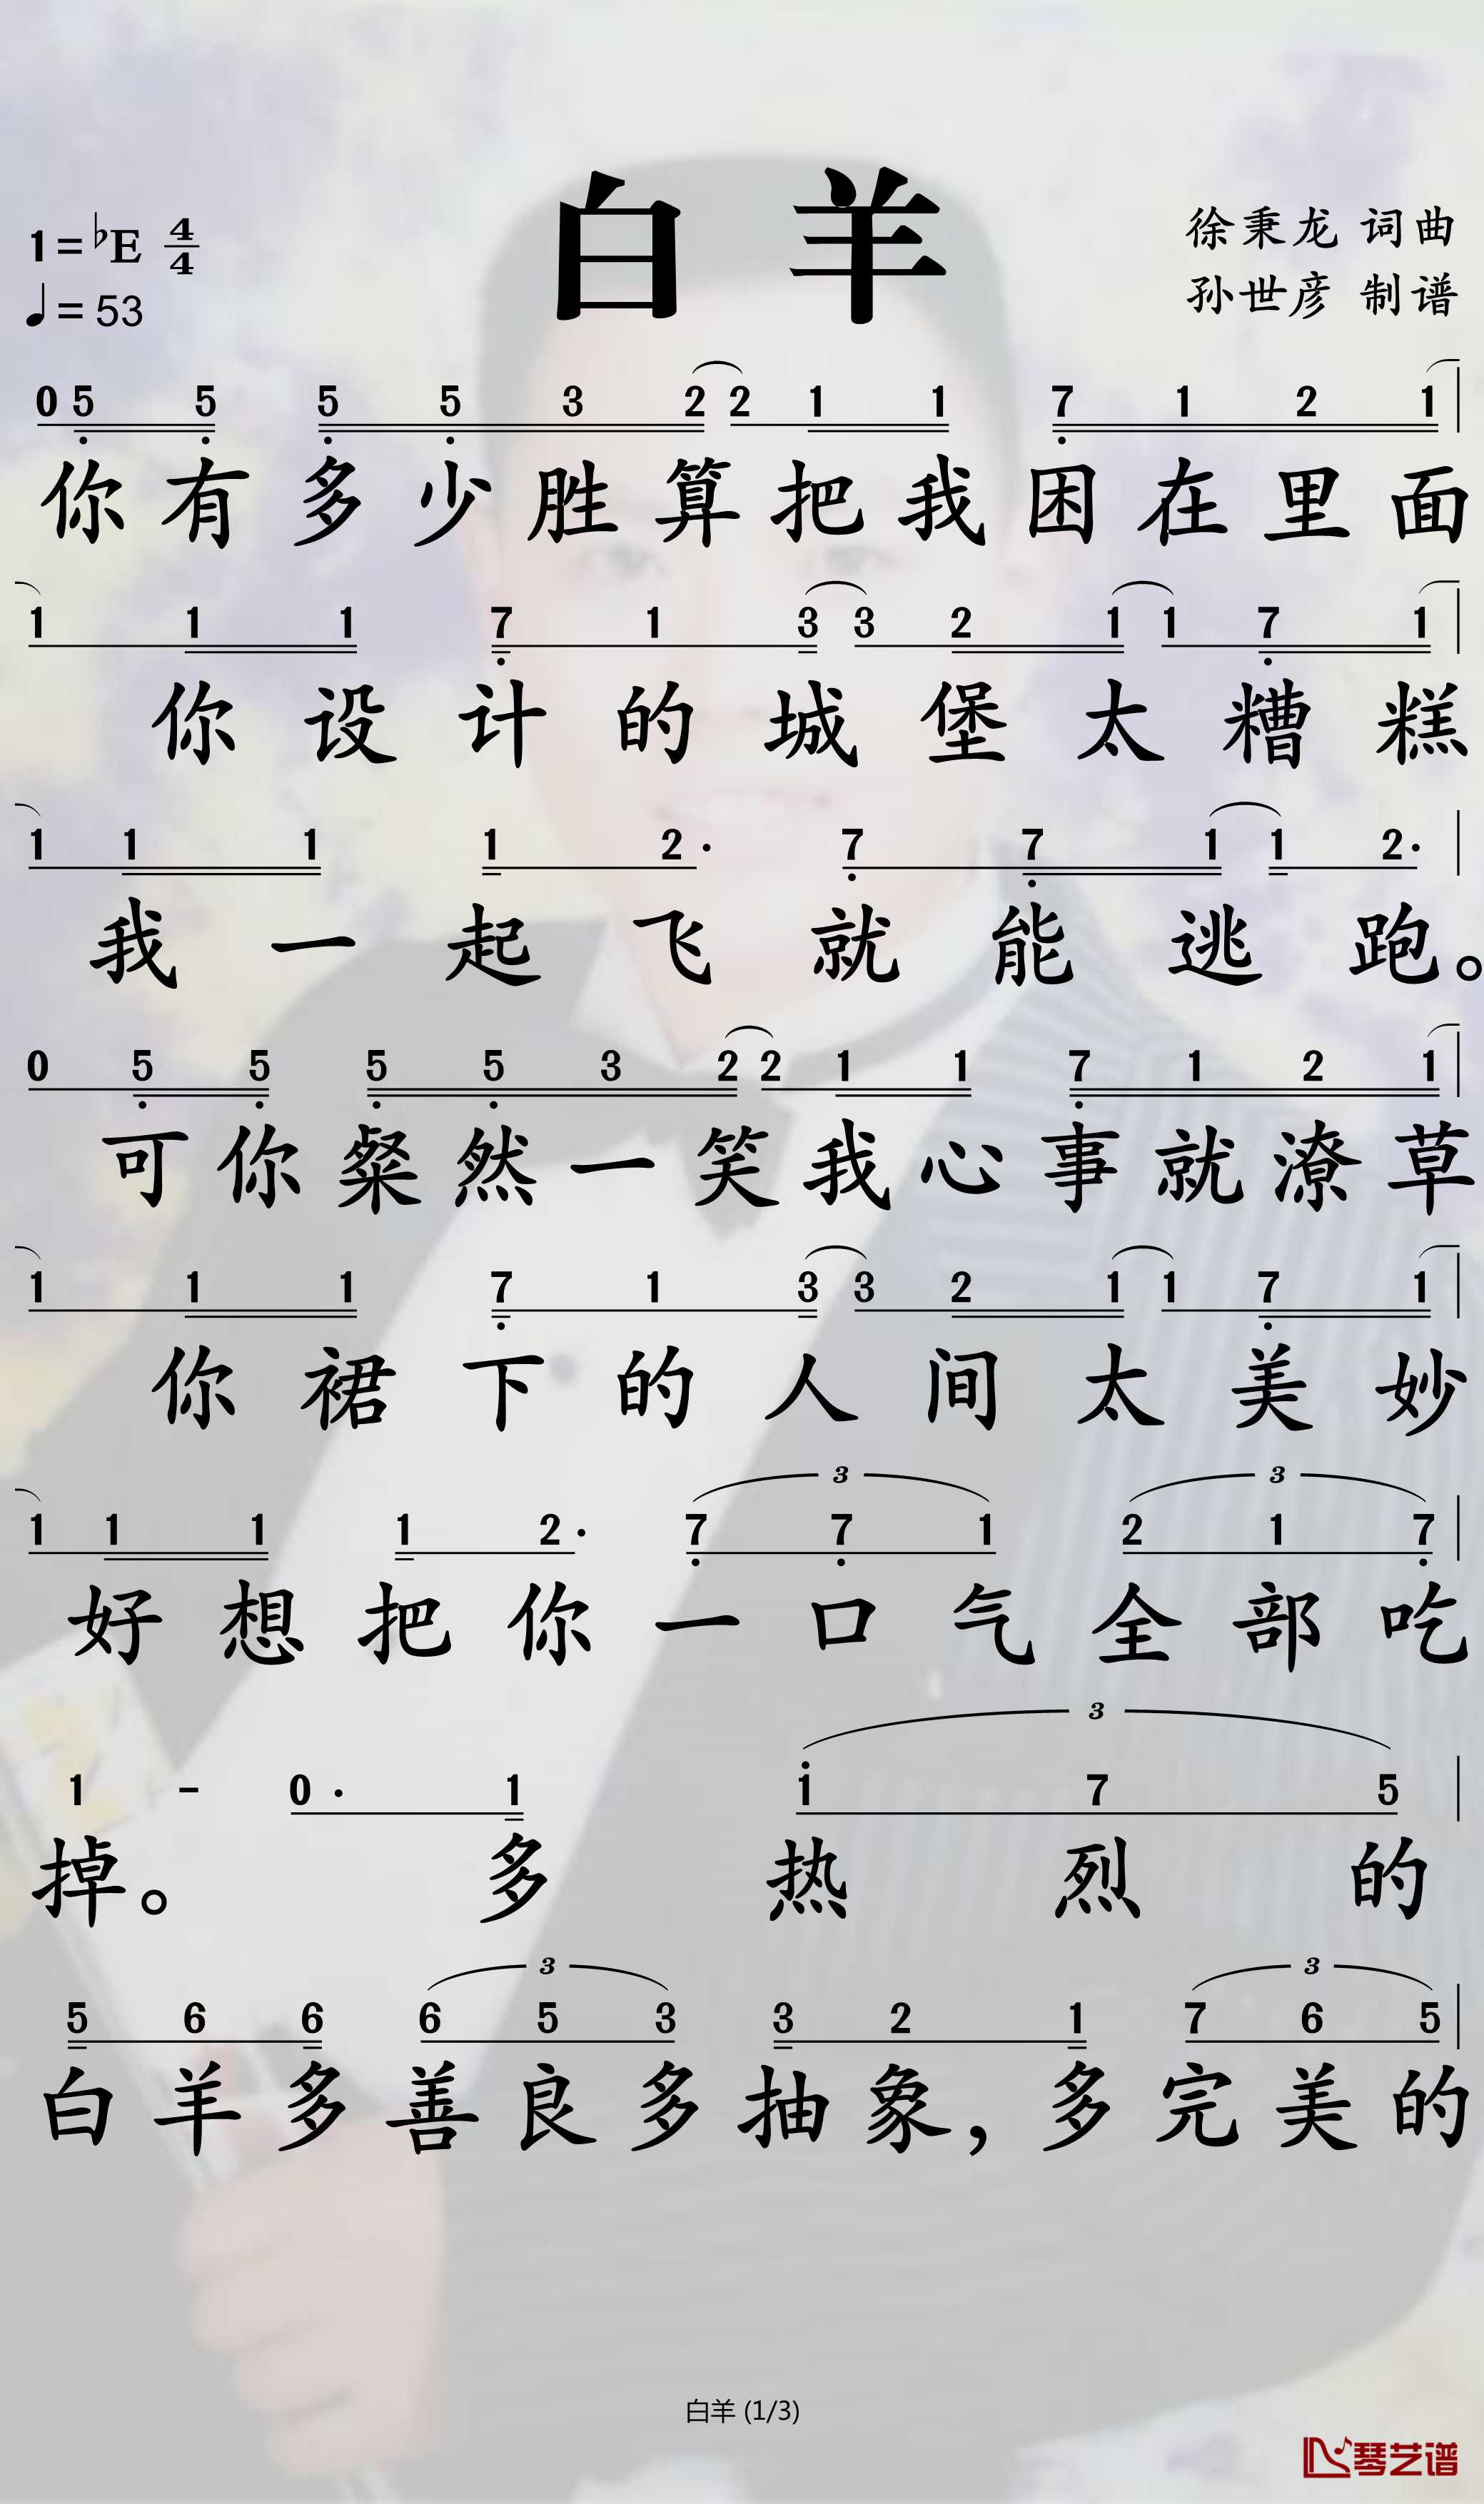 白 羊
1=♭E 4/4
♩=53
徐秉龙 词曲
孙世彦 制谱
0 5 5 5 5 3 2 2 1 1 7 1 2 1
你有多少胜算把我困在里面
1 1 1 7 1 3 3 2 1 1 7 1
你设计的城堡太糟糕
1 1 1 1 2· 7 7 1 1 2·
我一起飞就能逃跑。
0 5 5 5 5 3 2 2 1 1 7 1 2 1
可你粲然一笑我心事就潦草
1 1 1 7 1 3 3 2 1 1 7 1
你裙下的人间太美妙
3 3
1 1 1 1 2· 7 7 1 2 1 7
好想把你一口气全部吃
3
1 - 0· 1 1 7 5
掉。 多热烈的
3 3
5 6 6 6 5 3 3 2 1 7 6 5
白羊多善良多抽象，多完美的
白羊 (1/3)
琴艺谱